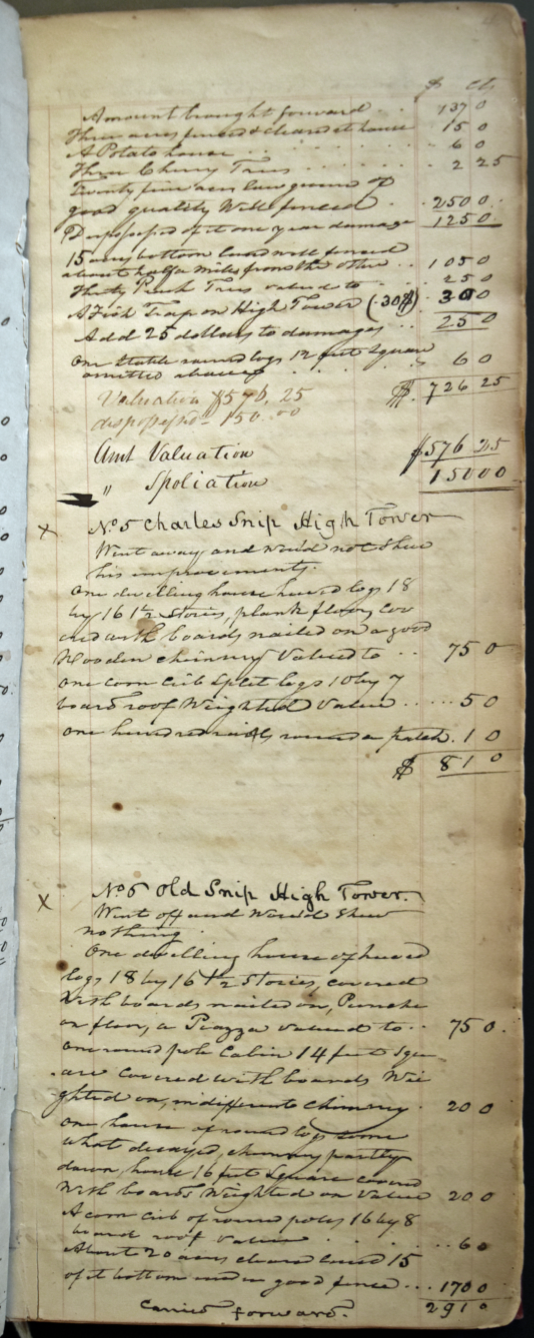 $ cts
Amount brought forward . . 137 0
Three acres fenced & cleared at house 15 0
A Potato house . . . . 6 0
Three Cherry Trees . . . . . 2 25
Twenty five acres low ground of
good quality Well fenced . 250 0
Dispossessed of it one year damage 125 0
15 acres bottom land well fenced
about half a mile from the other . . 105 0
Thirty Peach Trees valued to . . 25 0
A Fish Trap on High Tower (30$) . 30 0
Add 25 dollars to damages . . 25 0
One Stable round logs 12 feet Square
omitted above . . . . 6 0
$ 726 25
Valuation $576, 25
dispossessn 150. 00
Amt Valuation $576 25
" Spoliation 150 00
x No. 5 Charles Snip High Tower
Went away and would not Shew
his improvements.
One dwelling house hewed logs 18
by 16 1½ Stories, plank floor, cov
ered with boards nailed on a good
Wooden chimney Valued to . . 75 0
One corn Crib Split logs 10 by 7
board roof Weighted Value . . . . . 5 0
One hundred rails round a patch . 1 0
$ 81 0
x No. 6 Old Snip High Tower.
Went off and would Shew
nothing.
One dwelling house of hewed
logs 18 by 16 1½ Stories, covered
With boards nailed on, Punche
on floor, a Piazza Valued to . . 75 0.
One round pole Cabin 14 feet Squ
are Covered with boards Wei
ghted on, indifferent Chimney . 20 0
One house of round logs some
what decayed, chimney partly
down, house 16 feet Square covered
With boards Weighted on Value 20 0
A corn Crib of round poles 16 by 8
board roof Value . . . . . . 6 0
About 20 acres cleared land 15
of it bottom and in good fence . . . 170 0
Carried forward. 291 0